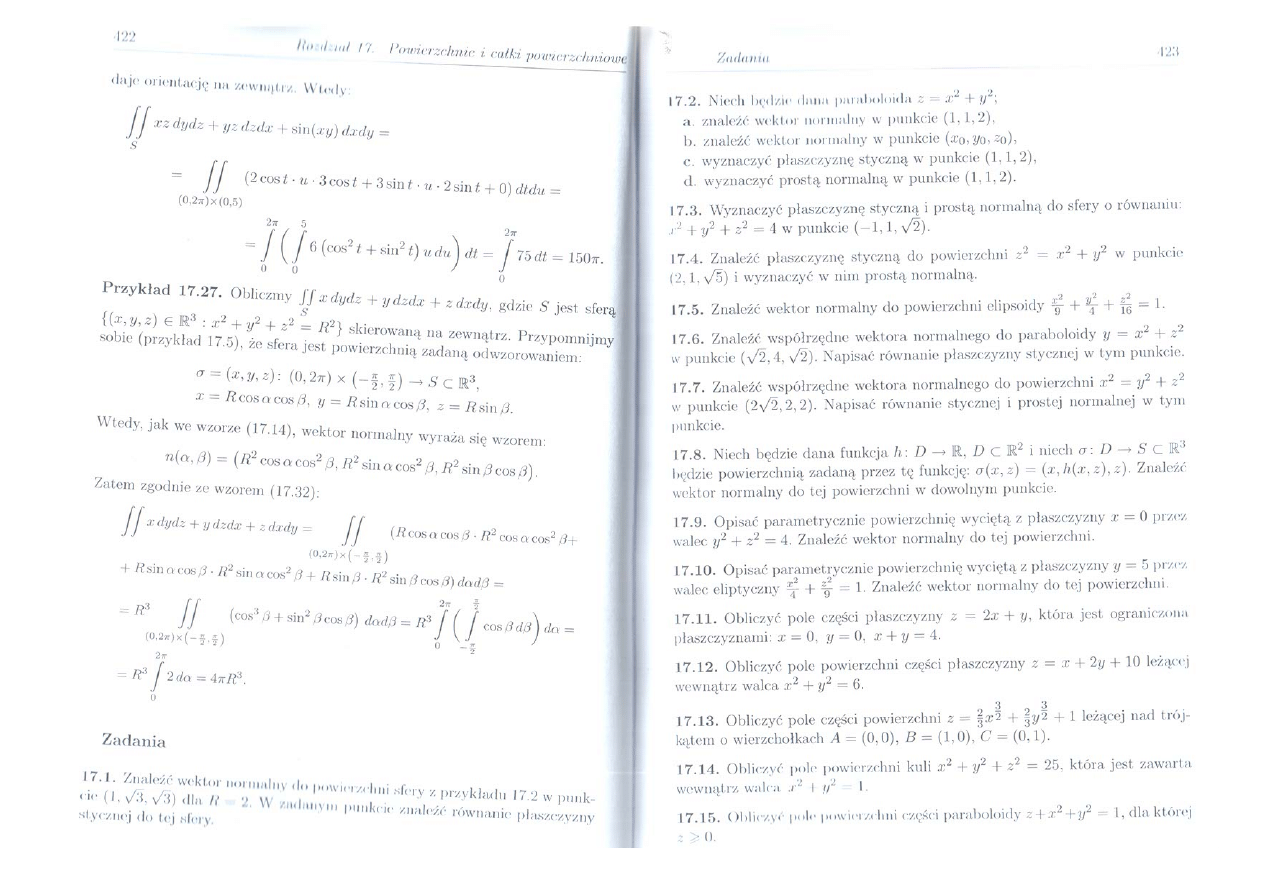 422
Rozdział 17. Powierzchnie i całki powierzchniowe
daje orientację na zewnątrz. Wtedy:
∬ xz dydz + yz dzdx + sin(xy) dxdy =
S
= ∬ (2 cos t · u · 3 cos t + 3 sin t · u · 2 sin t + 0) dtdu =
(0,2π)×(0,5)
= ∫₀^{2π} ( ∫₀^5 6 (cos² t + sin² t) u du ) dt = ∫₀^{2π} 75 dt = 150π.
Przykład 17.27. Obliczmy ∬_S x dydz + y dzdx + z dxdy, gdzie S jest sferą
{(x, y, z) ∈ ℝ³ : x² + y² + z² = R²} skierowaną na zewnątrz. Przypomnijmy
sobie (przykład 17.5), że sfera jest powierzchnią zadaną odwzorowaniem:
σ = (x, y, z): (0, 2π) × (−π/2, π/2) → S ⊂ ℝ³,
x = R cos α cos β, y = R sin α cos β, z = R sin β.
Wtedy, jak we wzorze (17.14), wektor normalny wyraża się wzorem:
n(α, β) = (R² cos α cos² β, R² sin α cos² β, R² sin β cos β).
Zatem zgodnie ze wzorem (17.32):
∬ x dydz + y dzdx + z dxdy = ∬ (R cos α cos β · R² cos α cos² β+
(0,2π)×(−π/2, π/2)
+ R sin α cos β · R² sin α cos² β + R sin β · R² sin β cos β) dαdβ =
= R³ ∬ (cos³ β + sin² β cos β) dαdβ = R³ ∫₀^{2π} ( ∫_{−π/2}^{π/2} cos β dβ ) dα =
(0,2π)×(−π/2, π/2)
= R³ ∫₀^{2π} 2 dα = 4πR³.
Zadania
17.1. Znaleźć wektor normalny do powierzchni sfery z przykładu 17.2 w punk-
cie (1, √3, √3) dla R = 2. W zadanym punkcie znaleźć równanie płaszczyzny
stycznej do tej sfery.
Zadania
423
17.2. Niech będzie dana paraboloida z = x² + y²;
a. znaleźć wektor normalny w punkcie (1, 1, 2),
b. znaleźć wektor normalny w punkcie (x₀, y₀, z₀),
c. wyznaczyć płaszczyznę styczną w punkcie (1, 1, 2),
d. wyznaczyć prostą normalną w punkcie (1, 1, 2).
17.3. Wyznaczyć płaszczyznę styczną i prostą normalną do sfery o równaniu:
x² + y² + z² = 4 w punkcie (−1, 1, √2).
17.4. Znaleźć płaszczyznę styczną do powierzchni z² = x² + y² w punkcie
(2, 1, √5) i wyznaczyć w nim prostą normalną.
17.5. Znaleźć wektor normalny do powierzchni elipsoidy x²/9 + y²/4 + z²/16 = 1.
17.6. Znaleźć współrzędne wektora normalnego do paraboloidy y = x² + z²
w punkcie (√2, 4, √2). Napisać równanie płaszczyzny stycznej w tym punkcie.
17.7. Znaleźć współrzędne wektora normalnego do powierzchni x² = y² + z²
w punkcie (2√2, 2, 2). Napisać równanie stycznej i prostej normalnej w tym
punkcie.
17.8. Niech będzie dana funkcja h: D → ℝ, D ⊂ ℝ² i niech σ: D → S ⊂ ℝ³
będzie powierzchnią zadaną przez tę funkcję: σ(x, z) = (x, h(x, z), z). Znaleźć
wektor normalny do tej powierzchni w dowolnym punkcie.
17.9. Opisać parametrycznie powierzchnię wyciętą z płaszczyzny x = 0 przez
walec y² + z² = 4. Znaleźć wektor normalny do tej powierzchni.
17.10. Opisać parametrycznie powierzchnię wyciętą z płaszczyzny y = 5 przez
walec eliptyczny x²/4 + z²/9 = 1. Znaleźć wektor normalny do tej powierzchni.
17.11. Obliczyć pole części płaszczyzny z = 2x + y, która jest ograniczona
płaszczyznami: x = 0, y = 0, x + y = 4.
17.12. Obliczyć pole powierzchni części płaszczyzny z = x + 2y + 10 leżącej
wewnątrz walca x² + y² = 6.
17.13. Obliczyć pole części powierzchni z = 2/3 x^{3/2} + 2/3 y^{3/2} + 1 leżącej nad trój-
kątem o wierzchołkach A = (0, 0), B = (1, 0), C = (0, 1).
17.14. Obliczyć pole powierzchni kuli x² + y² + z² = 25, która jest zawarta
wewnątrz walca x² + y² = 1.
17.15. Obliczyć pole powierzchni części paraboloidy z + x² + y² = 1, dla której
z ⩾ 0.